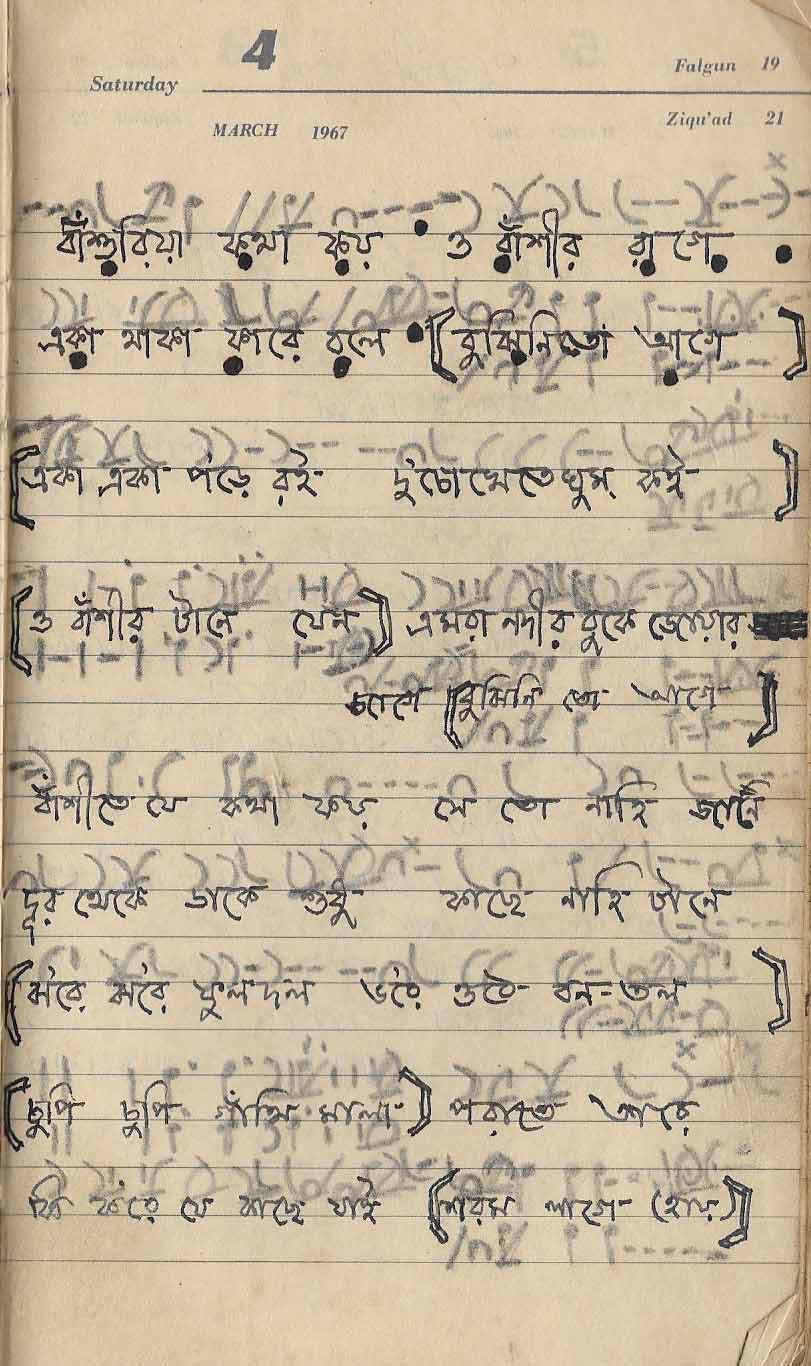 4
Saturday
Falgun 19
MARCH 1967
Ziqu'ad 21
বাঁশুরিয়া কথা কয় ও বাঁশীর রাগে
একা থাকা কারে বলে [বুঝিনিতো আগে]
[একা একা প'ড়ে রই দু'চোখেতে ঘুম কই]
[ও বাঁশীর টানে যেন] এমরা নদীর বুকে জোয়ার
জাগে [বুঝিনি তো আগে]
বাঁশীতে যে কথা কয় সে তো নাহি জানে
দূর থেকে ডাকে শুধু কাছে নাহি টানে
[ঝ'রে ঝ'রে ফুলদল ভ'রে ওঠে বন-তল]
[চুপি চুপি গাঁথি মালা] পরাতে তারে
কি ক'রে যে কাছে যাই [শরম লাগে (হায়)]